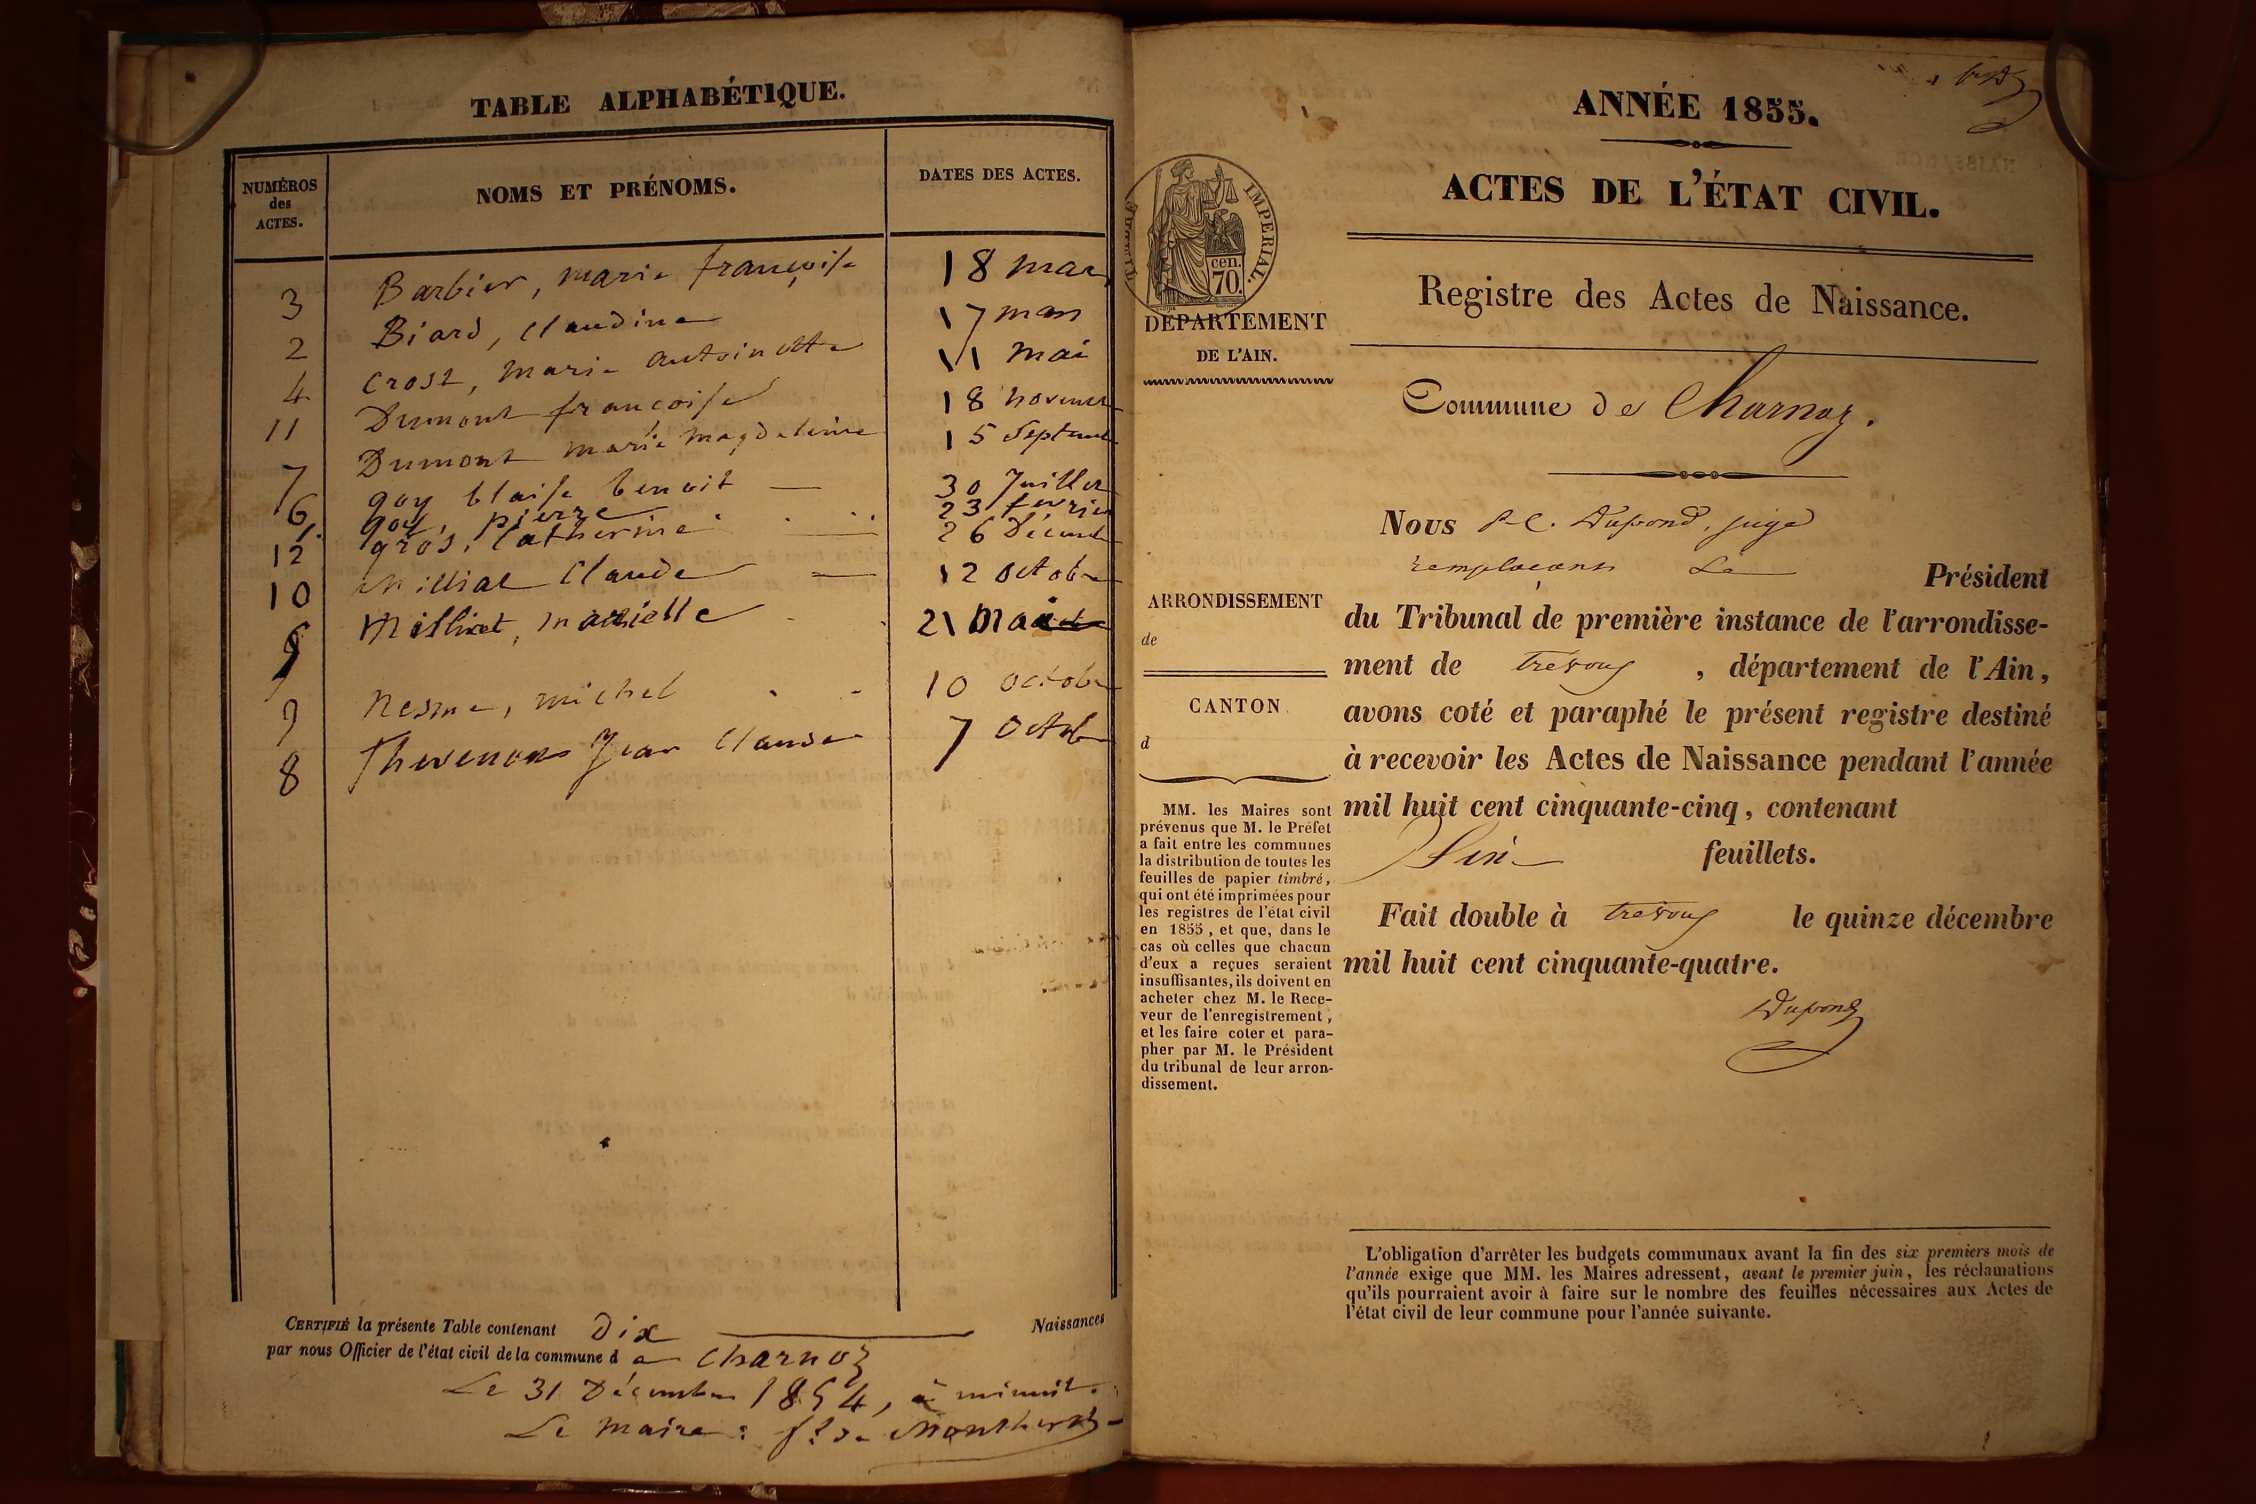 TABLE ALPHABÉTIQUE.
NUMÉROS
des
ACTES.
NOMS ET PRÉNOMS.
DATES DES ACTES.
3 Barbier, marie françoise 18 mars
2 Biard, Claudine 17 mars
4 Crost, marie antoinette 11 mai
11 Dumont françoise 18 novemb
7 Dumont marie magdeleine 15 Septemb
6 goy blaise benoit 30 Juillet
1. goy, pierre 23 fevrier
12 gros, Catherine 26 Décemb
10 Milliat Claude 12 octobre
5 Millieret, mariette 21 Mai
9 Nesme, michel 10 octobre
8 Thevenon Jean Claude 7 Octob
CERTIFIÉ la présente Table contenant dix Naissances
par nous Officier de l'état civil de la commune d e Charnoz
Le 31 Décembre 1854, à minuit.
Le maire :
ANNÉE 1855.
ACTES DE L'ÉTAT CIVIL.
IMPERIAL.
cen.
70.
DÉPARTEMENT
DE L'AIN.
Registre des Actes de Naissance.
Commune de Charnoz.
Nous P. C. Dupond, juge
remplaçant Le Président
ARRONDISSEMENT
de
CANTON
d
du Tribunal de première instance de l'arrondisse-
ment de trévoux, département de l'Ain,
avons coté et paraphé le présent registre destiné
à recevoir les Actes de Naissance pendant l'année
mil huit cent cinquante-cinq, contenant
Six feuillets.
Fait double à trévoux le quinze décembre
mil huit cent cinquante-quatre.
Dupond
MM. les Maires sont
prévenus que M. le Préfet
a fait entre les communes
la distribution de toutes les
feuilles de papier timbré,
qui ont été imprimées pour
les registres de l'état civil
en 1855, et que, dans le
cas où celles que chacun
d'eux a reçues seraient
insuffisantes, ils doivent en
acheter chez M. le Rece-
veur de l'enregistrement,
et les faire coter et para-
pher par M. le Président
du tribunal de leur arron-
dissement.
L'obligation d'arrêter les budgets communaux avant la fin des six premiers mois de
l'année exige que MM. les Maires adressent, avant le premier juin, les réclamations
qu'ils pourraient avoir à faire sur le nombre des feuilles nécessaires aux Actes de
l'état civil de leur commune pour l'année suivante.